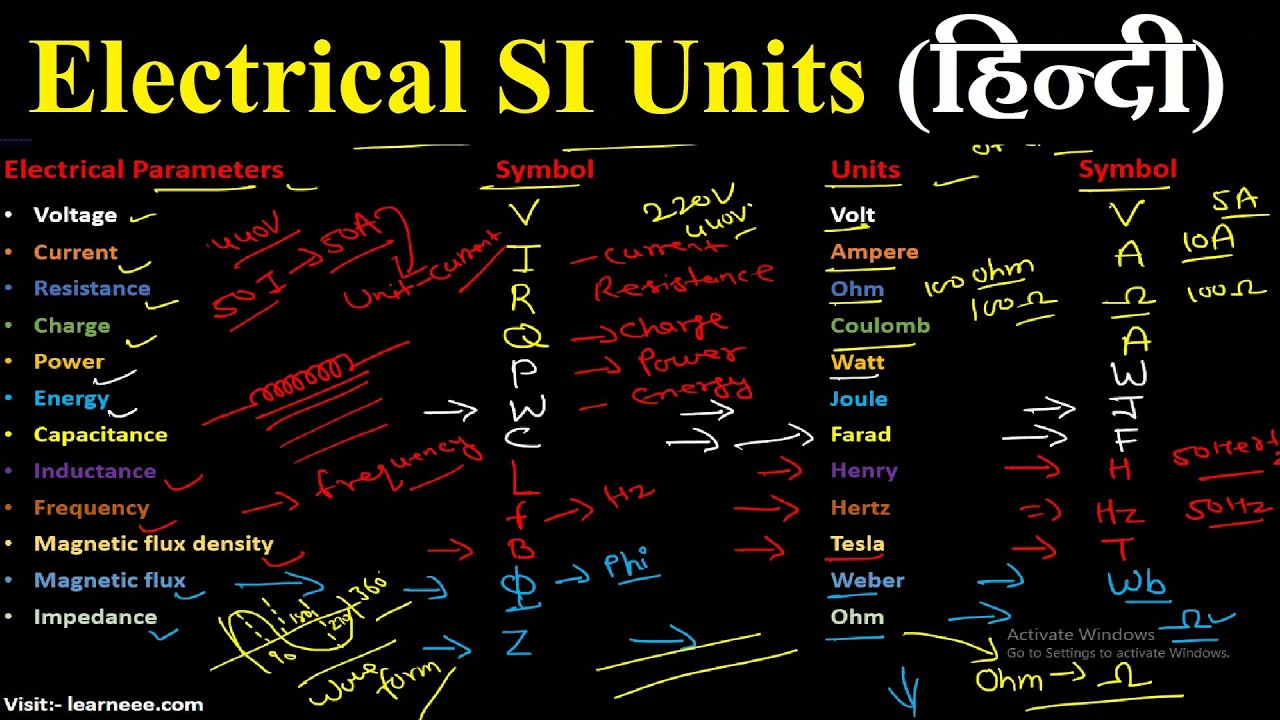 Electrical SI Units (हिन्दी)
Electrical Parameters Symbol Units Symbol
• Voltage V 220V 440V Volt V 5A
• Current 440V 50I → 50A Unit-Current I - Current Ampere A 10A
• Resistance R Resistance Ohm 100 Ohm 100Ω Ω 100Ω
• Charge Q → Charge Coulomb A
• Power P → Power Watt W
• Energy → W - Energy → Joule → J
• Capacitance C → → Farad → F
• Inductance L → Henry → H 50Hertz
• Frequency → frequency f → Hz → Hertz ⇒ Hz 50Hz
• Magnetic flux density → B → Tesla → T
• Magnetic flux → → Φ → Phi Weber → Wb
• Impedance 90 180 270 360° → Z → Ohm → Ω
Wave form
Activate Windows
Go to Settings to activate Windows.
Ohm → Ω
Visit:- learneee.com